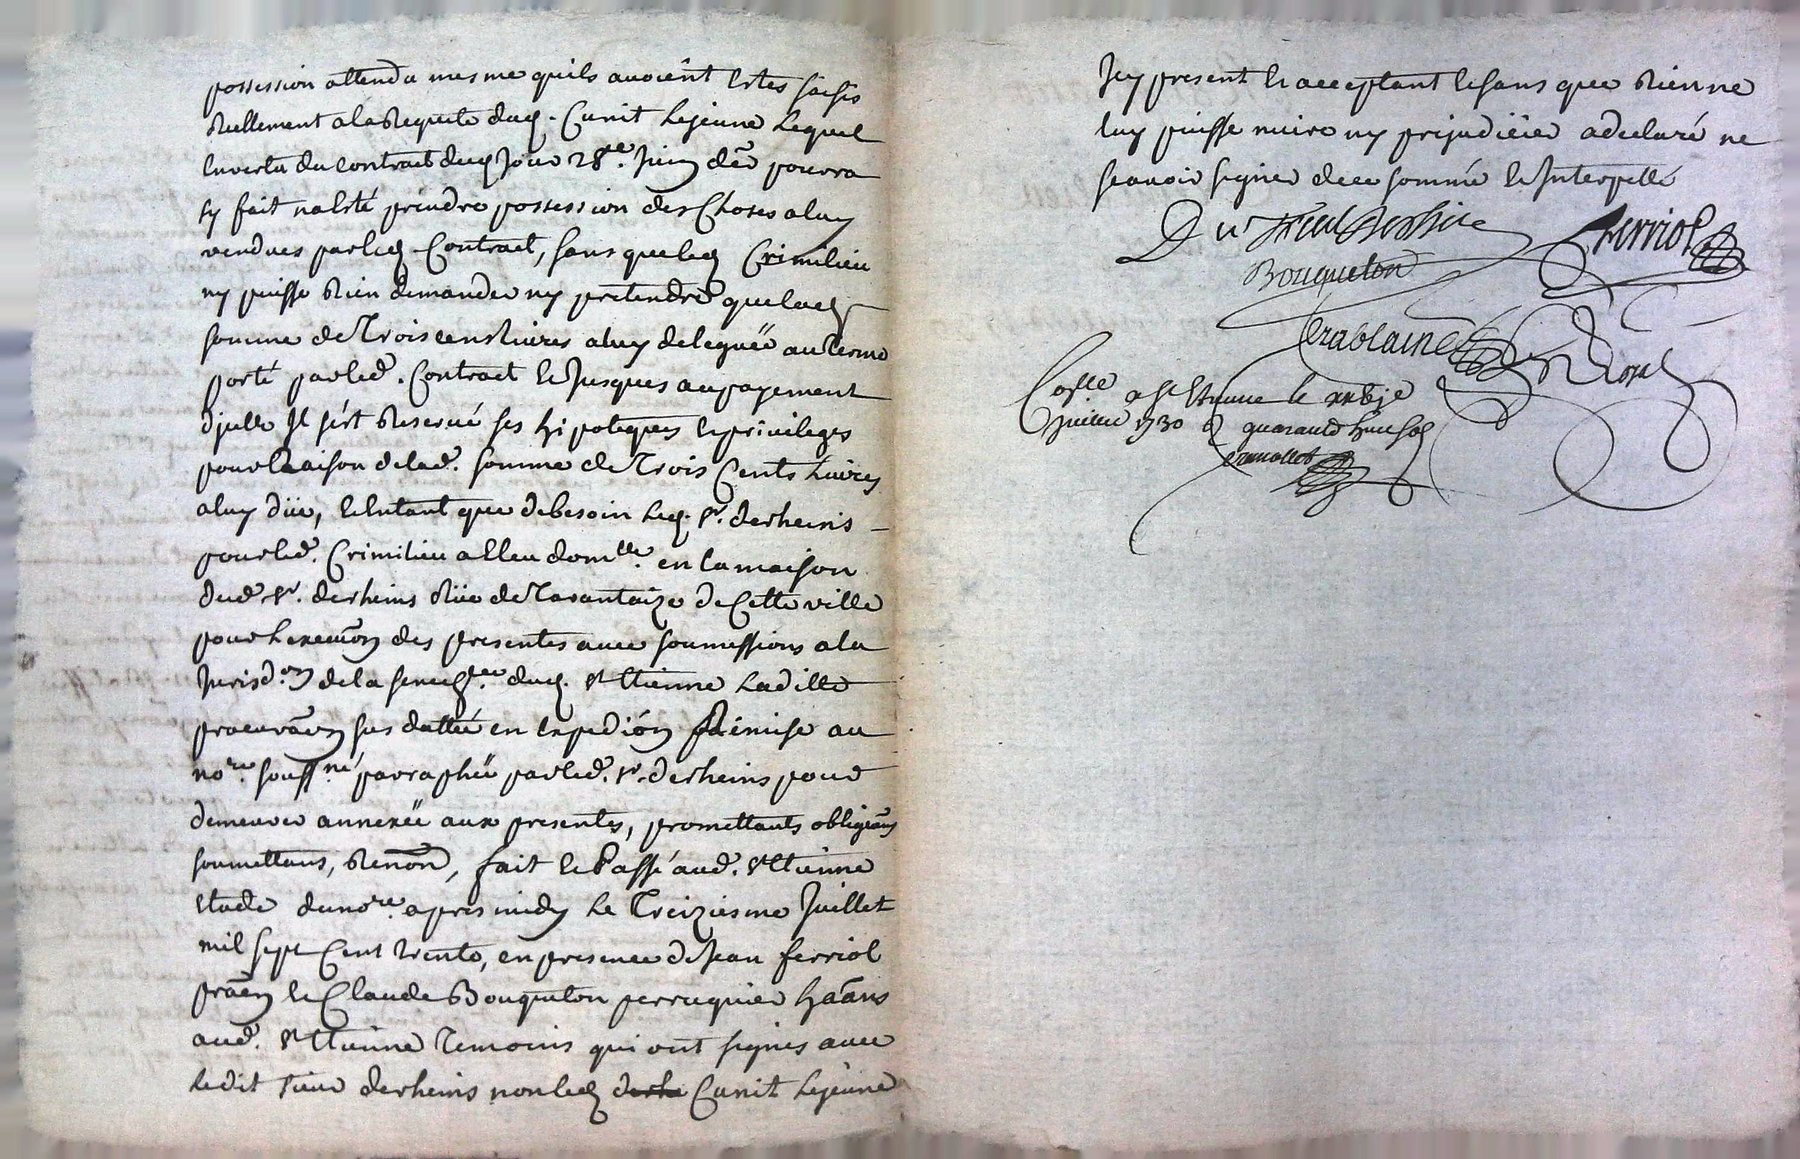 possession attendu mesme quils avoient estes saisis
reellement a la requete dud. Cunit Lejeune lequel
en vertu du contract dud jour 28e. juin der pourra
sy fait na esté prendre possession des choses a luy
vendues par led Contract, sans que led Crimilieu
ny puisse rien demander ny pretendre que lad
somme de Trois cens livres a luy deleguée au terme
porté par led. Contract et Jusques au payement
djcelle Il s'est reservé ses hipoteques et privileges
pour Raison de lad. somme de Trois Cents Livres
a luy düe, et Entant que de besoin led. sr. derheins
pour led. Crimilieu a Elleu domlle. en la maison
dud. sr. derheins Rüe de Tarantaize de Cette ville
pour Lexecuõn des presentes avec soumissions a la
Jurisd.on de la senechée. dud. st Etienne Laditte
procuraõn sus dattée en expediõn Remise au
nore. soussné paraphée par led. sr. derheins pour
demeurer annexée aux presentes, promettants obligeans
soumettans, Renonº, fait et Passé aud. st Etienne
Etude du nore. apres midy Le Treiziesme Juillet
mil sept Cent trente, en presence de Jean ferriol
praēn et Claude Bouqueton perruquier haāns
aud. st Etienne Temoins qui ont signés avec
Ledit sieur derheins non led derhe Cunit Lejeune
Icy present et acceptant et sans que Rien ne
luy puisse nuire ny prejudicier a declaré ne
scavoir signer de ce sommé et Interpellé
ferriol
Bouqueton
Crablaine
Royal
Coslle a st Etienne le xxbje
juillet 1730 quarante huit sols